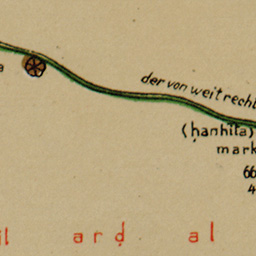 der von weit recht
(ḥanhîta)
mark
66
4
il ard al